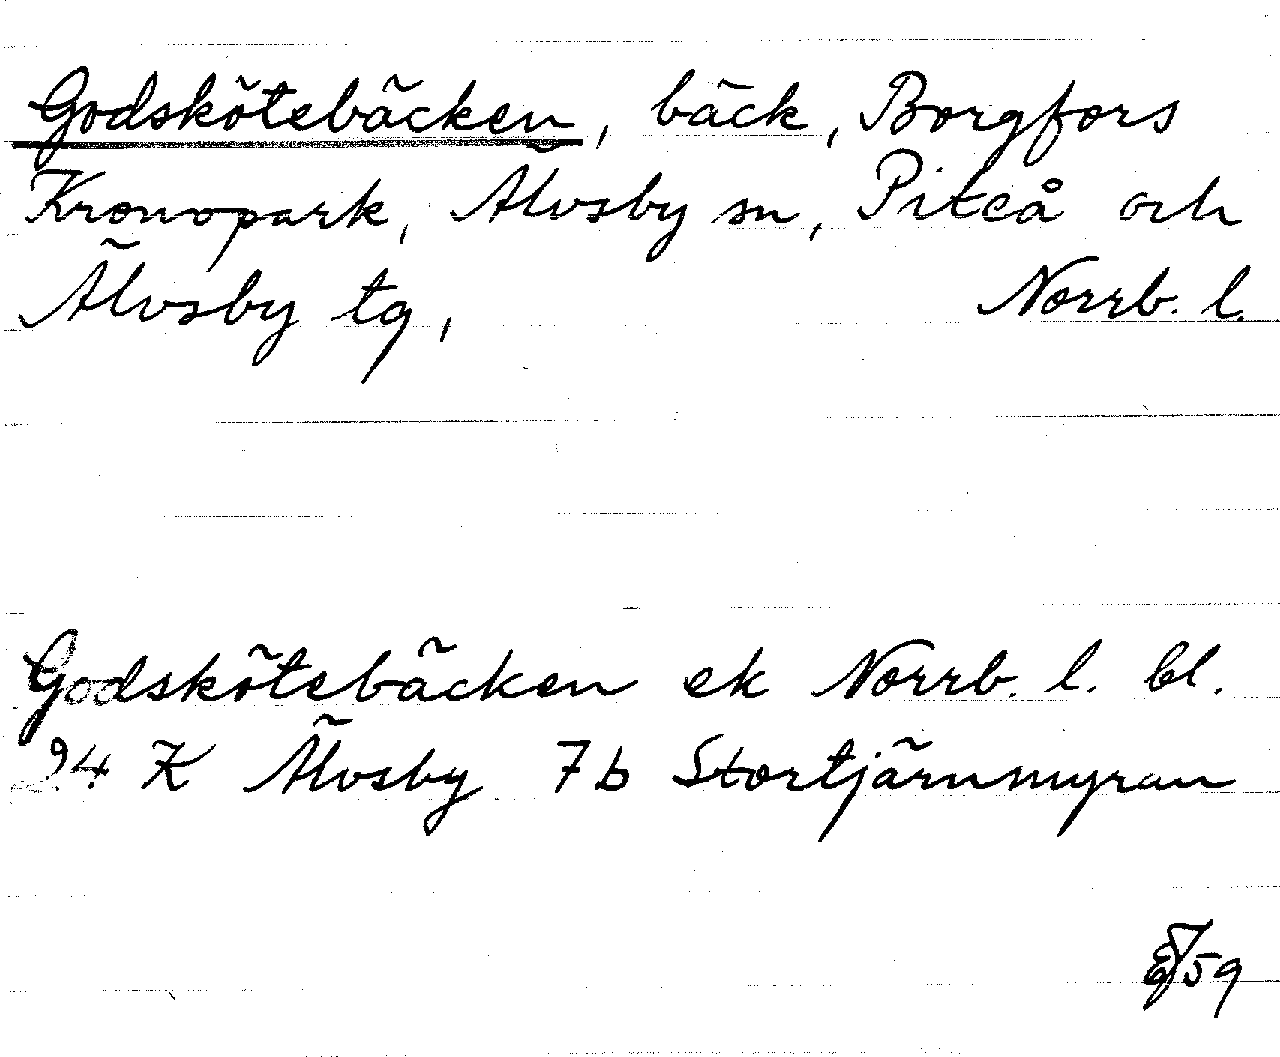 Godskötebäcken, bäck, Borgfors
Kronopark, Älvsby sn, Piteå och
Älvsby tg, Norrb. l.
Godskötebäcken ek Norrb. l. bl.
24 K Älvsby 7b Stortjärnmyran
59